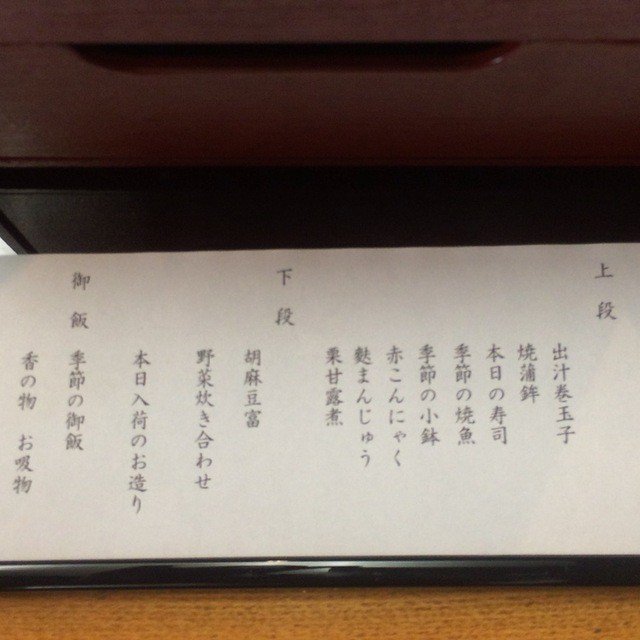 上段
出汁巻玉子
焼蒲鉾
本日の寿司
季節の焼魚
季節の小鉢
赤こんにゃく
麩まんじゅう
栗甘露煮
下段
胡麻豆富
野菜炊き合わせ
本日入荷のお造り
御飯 季節の御飯
香の物 お吸物